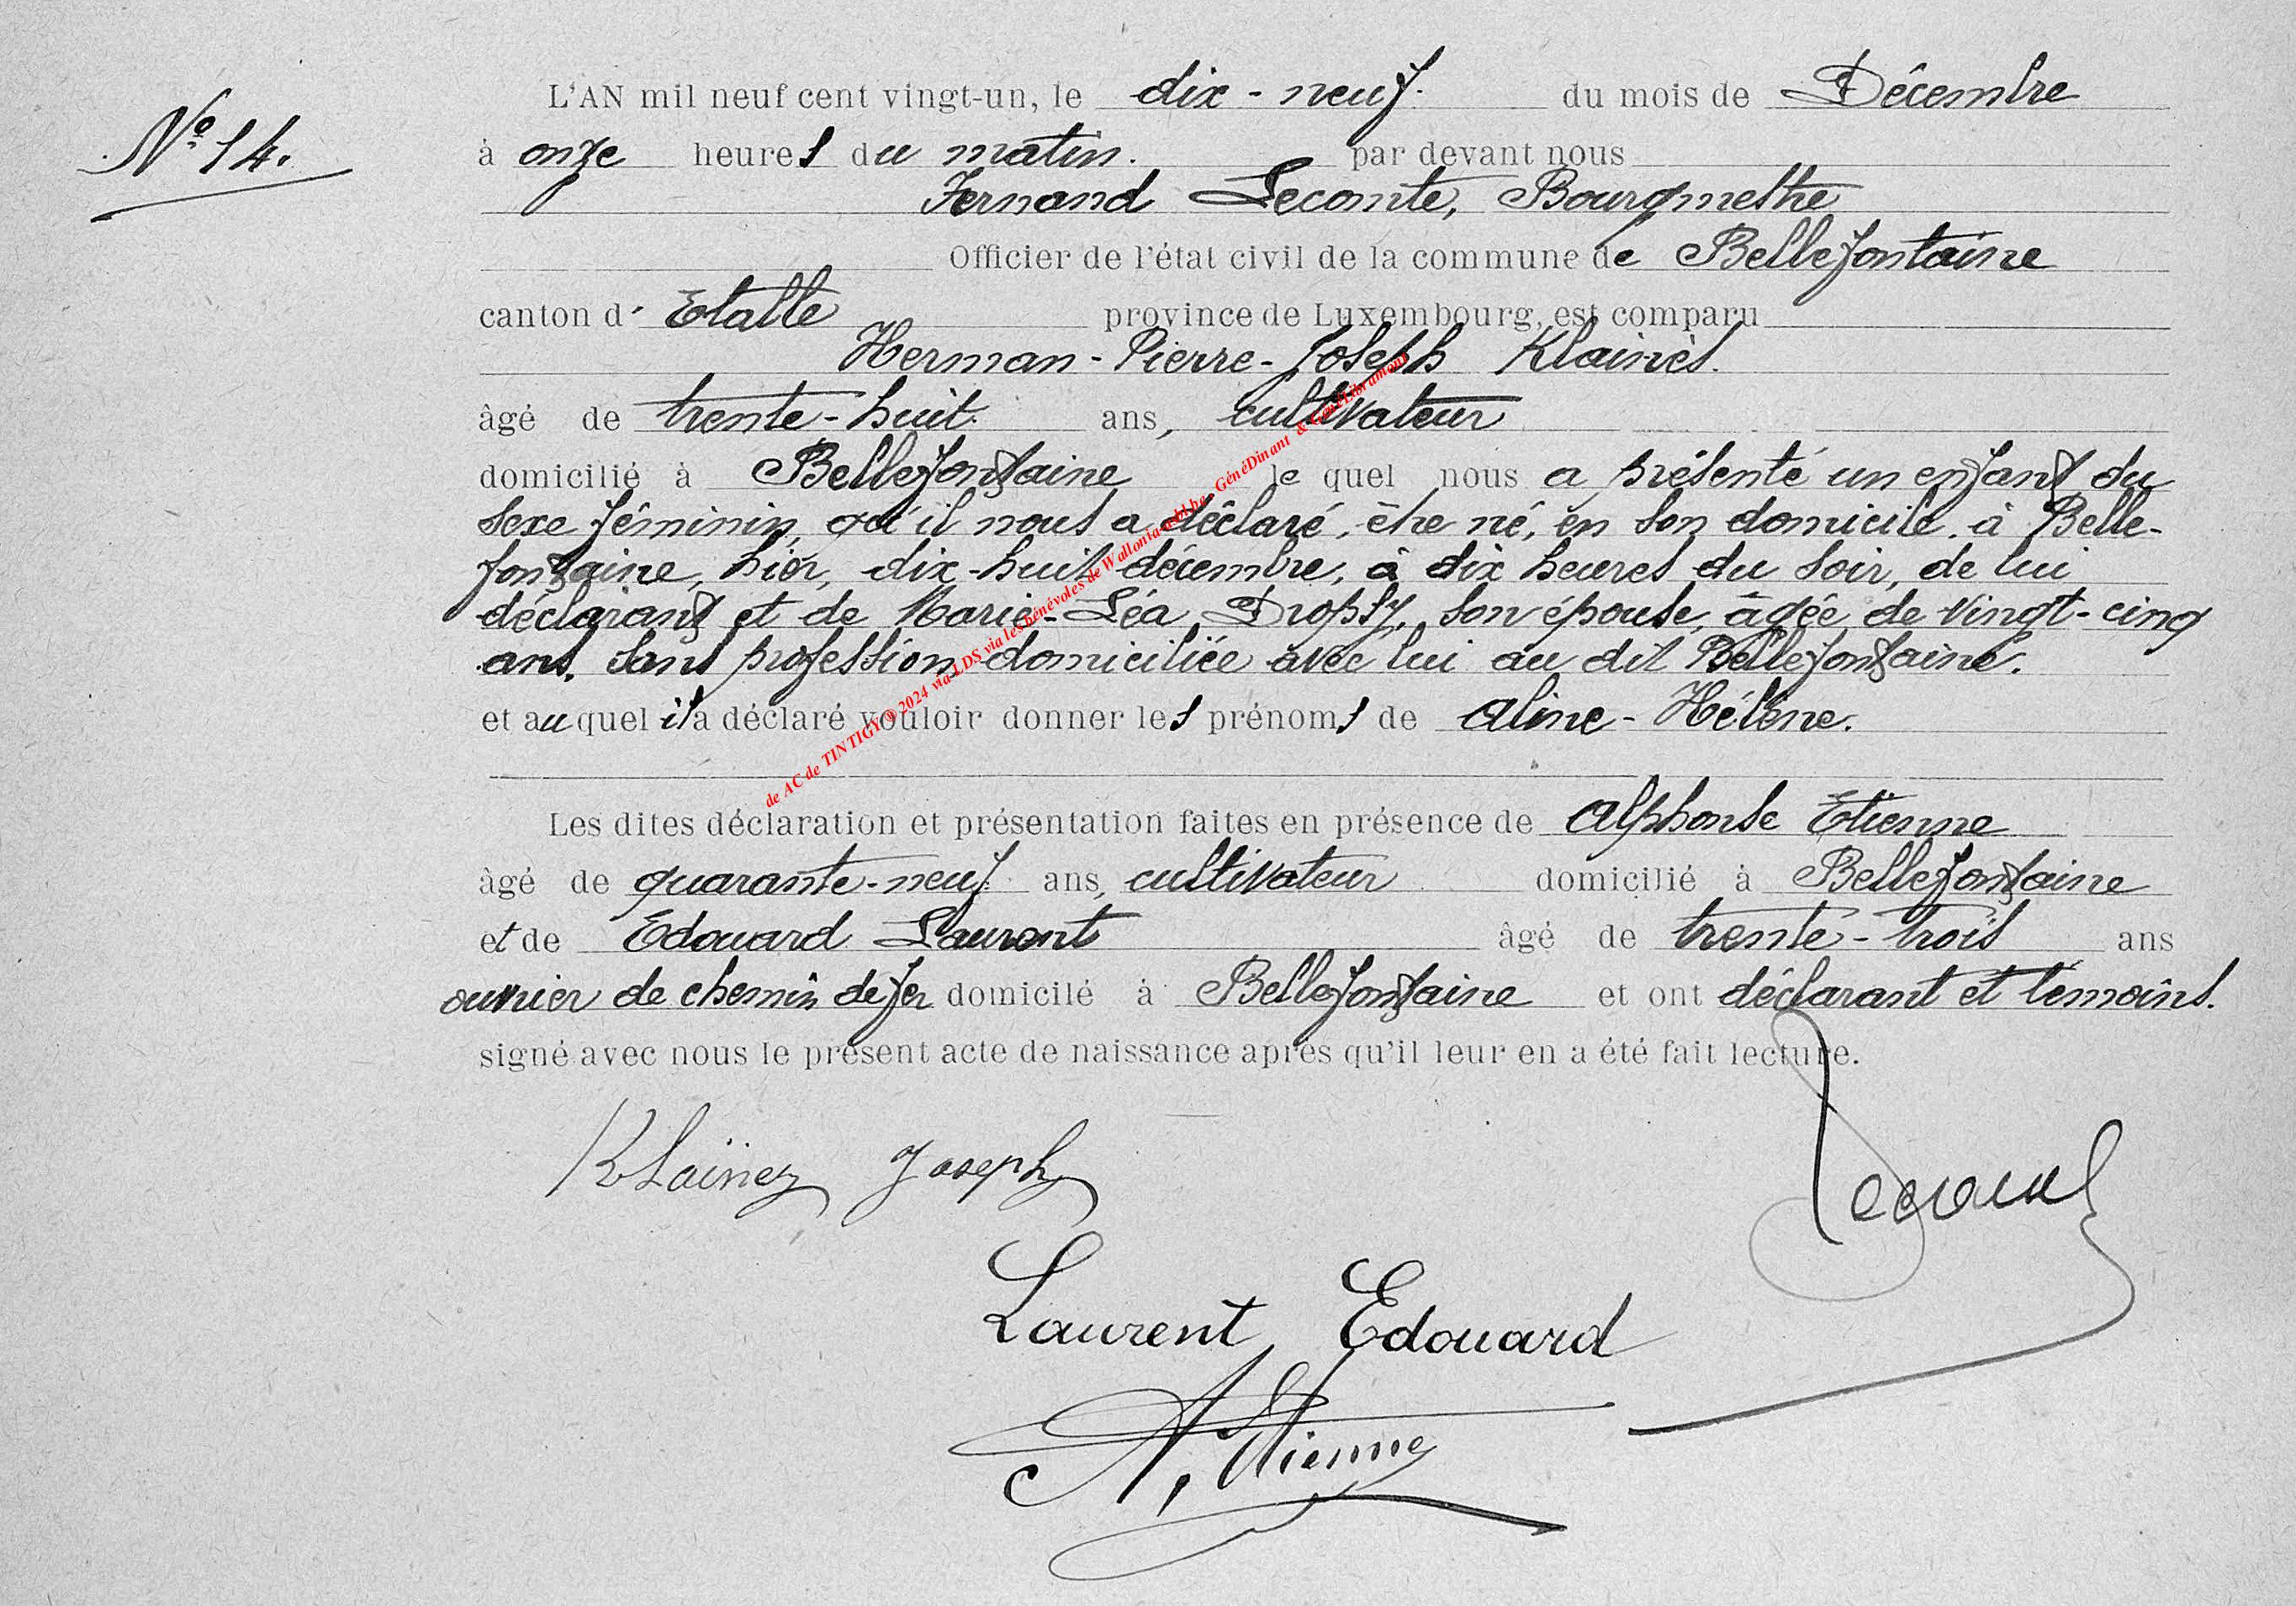 L'AN mil neuf cent vingt-un, le dix-neuf. du mois de Décembre
N° 14.
à onze heures du matin. par devant nous
Fernand Lecomte, Bourgmestre
Officier de l'état civil de la commune de Bellefontaine
canton d' Etalle province de Luxembourg, est comparu
Herman-Pierre-Joseph Klainès.
âgé de trente-huit. ans, cultivateur
domicilié à Bellefontaine le quel nous a présenté un enfant du
sexe féminin, qu'il nous a déclaré, être né, en son domicile. à Belle-
fontaine, hier, dix-huit décembre, à dix heures du soir, de lui
déclarant et de Marie-Léa Dropsy, son épouse, âgée de vingt-cinq
ans, sans profession domiciliée avec lui au dit Bellefontaine.
et au quel il a déclaré vouloir donner les prénoms de Aline-Hélène.
de AC de TINTIGY © 2024 via LDS via les bénévoles de Wallonia asbl bc- GénéDinant & GénéLibramont
Les dites déclaration et présentation faites en présence de Alphonse Etienne
âgé de quarante-neuf ans, cultivateur domicilié à Bellefontaine
et de Edouard Laurent âgé de trente-trois ans
ouvrier de chemin de fer domicilé à Bellefontaine et ont déclarant et témoins.
signé avec nous le présent acte de naissance après qu'il leur en a été fait lecture.
Klaïnez Joseph
Laurent Edouard
A. Etienne